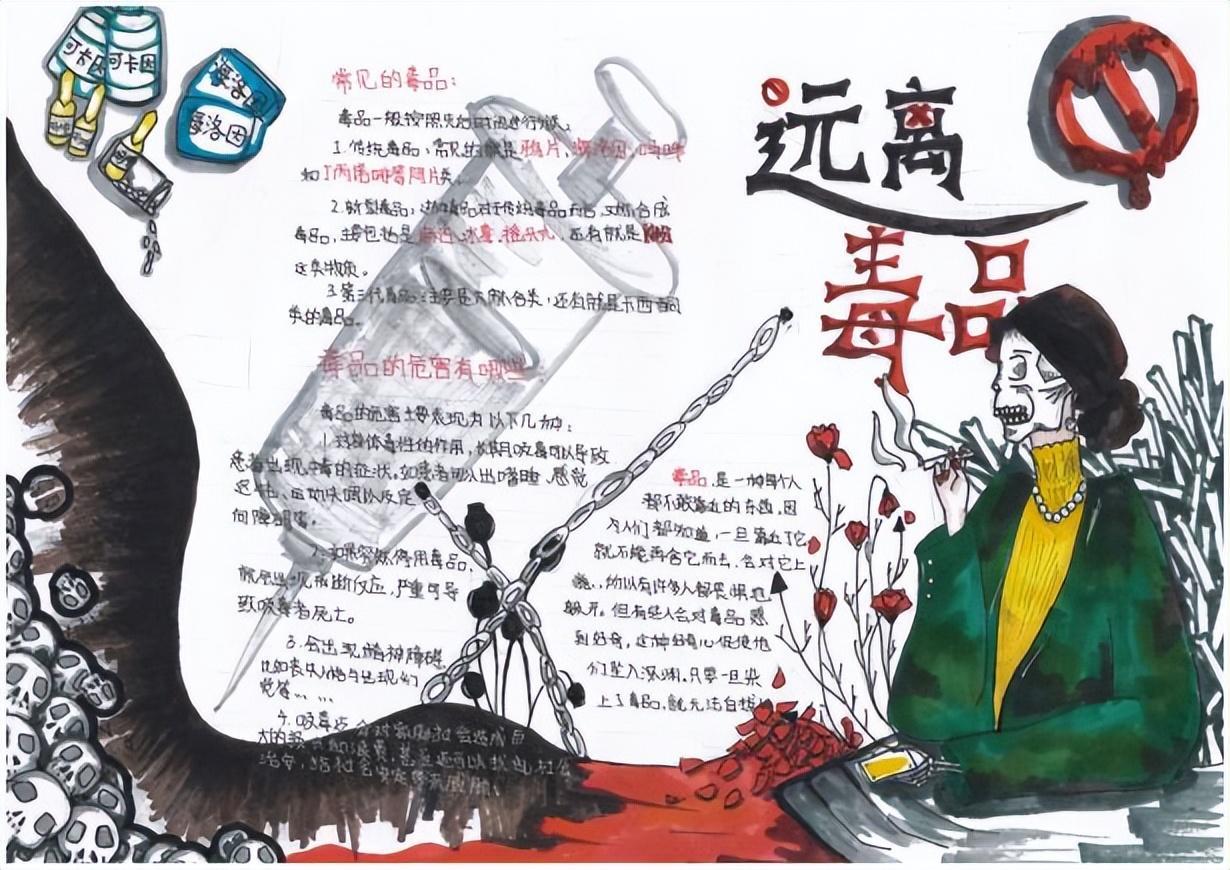 可卡因 可卡因
海洛因
毒洛因
远离
毒品
常见的毒品:
毒品一般按照先后时间进行分类。
1.传统毒品:常见的就是鸦片,海洛因,
和丁丙诺啡等阿片类。
2.新型毒品:对于传统毒品而言,又加合成
毒品,主要包括是冰毒、摇头丸,还有就是
这类物质。
3.第三代毒品:主要是大麻合类,还有就是卡西酮
类的毒品。
毒品的危害有哪些
毒品的危害主要表现为以下几方面:
1.对身体毒性的作用,长期吸毒可以导致
患者出现中毒的症状,如患者可以出嗜睡、感觉
迟钝、运动失调以及定
向障碍等。
2.如果突然停用毒品,
就会出现戒断反应,严重可导
致吸毒者死亡。
3.会出现精神障碍,
比如丧失人格与出现幻
觉等……
4.吸毒还会对家庭社会造成巨
大的损失和浪费,甚至还可以扰乱社会
治安,给社会安定带来威胁。
毒品,是一种每个人
都不敢靠近的东西,因
为人们都知道,一旦靠近了它
就不能再舍它而去,会对它上
瘾,所以有许多人都畏惧地
躲开。但有些人会对毒品感
到好奇,这种好奇心促使他
们坠入深渊。只要一旦染
上了毒品,就无法自拔